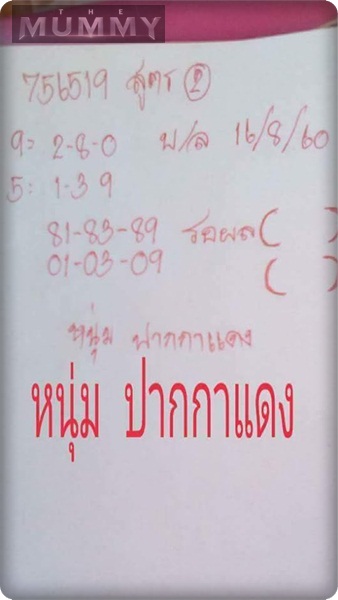 THE
MUMMY
756519 สูตร 2
9: 2-8-0 บ/ล 16/8/60
5: 1-3 9
81-83-89 รอผล ( )
01-03-09 ( )
หนุ่ม ปากกาแดง
หนุ่ม ปากกาแดง